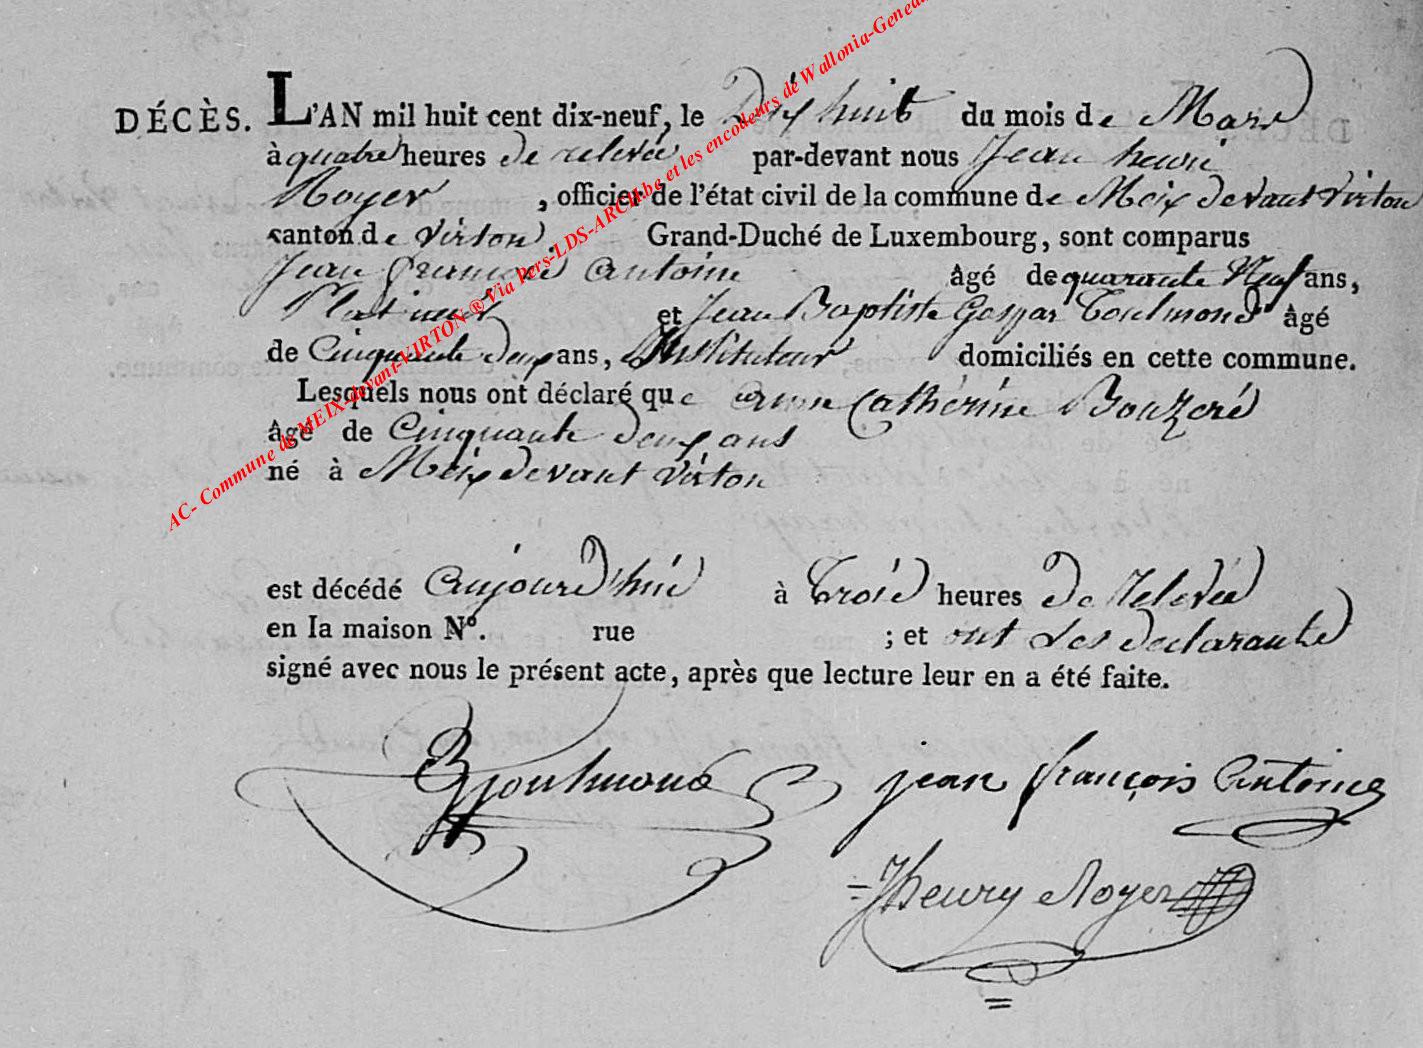 DÉCÈS. L'AN mil huit cent dix-neuf, le Dix huit du mois de Mars
à quatre heures de relevée par-devant nous Jean henri
Royer, officier de l'état civil de la commune de Meix devant virton
canton de virton. Grand-Duché de Luxembourg, sont comparus
Jean françois antoine âgé de quarante Neuf ans,
et Jean Baptiste Gaspar Toulmond âgé
de Cinquante deux ans, Instituteur domiciliés en cette commune.
Lesquels nous ont déclaré que anne Catherine Bouzeré
âgé de Cinquante deux ans
né à Meix devant virton
est décédé aujourd'hui à Trois heures de Relevée
en la maison Nº. rue ; et ont les declarants
signé avec nous le présent acte, après que lecture leur en a été faite.
jean françois Antoine
JHenry Royer
AC- Commune de MEIX-devant-VIRTON ® Via Pers-LDS-ARCH.be et les encodeurs de Wallonia-Genea